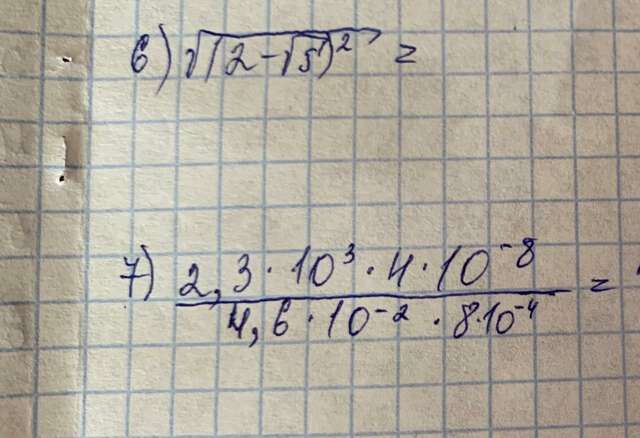 6) √(2-√5)² =
7) 2,3 · 10³ · 4 · 10⁻⁸ =
4,6 · 10⁻² · 8 · 10⁻⁴